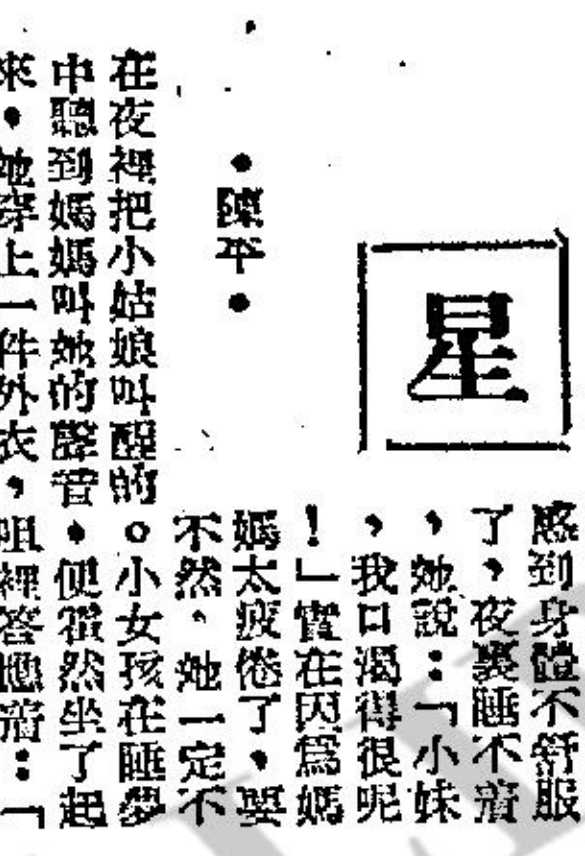 星
•陳平•
感到身體不舒服
了，夜裏睡不着
，她說：「小妹
，我口渴得很呢
！」實在因爲媽
媽太疲倦了，要
不然，她一定不
在夜裡把小姑娘叫醒的。小女孩在睡夢
中聽到媽媽叫她的聲音，便霍然坐了起
來，她穿上一件外衣，咀裡答應着：「